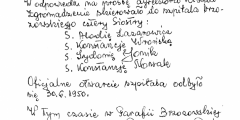 W odpowiedzi na prośbę
Zgromadzenie skierowało do szpitala brzo-
zowskiego cztery Siostry:
S. Alodię Lazarowicz
S. Konstancję Wrońską
S. Sydonię
S. Konstancję Nawrale
Oficjalne otwarcie szpitala odbyło
się 30.6.1950.
W Tym czasie w Parafii Brzozowskiej